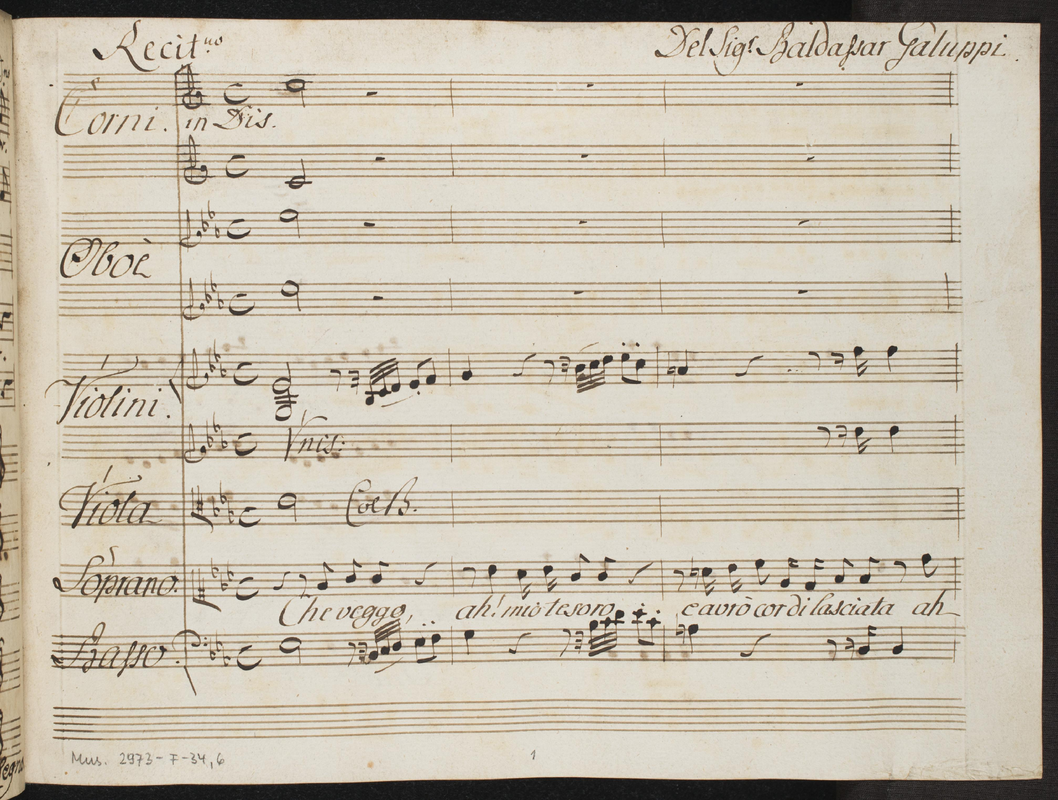 Recit.vo Del Sigr Baldaſsar Galuppi.
Corni. in Dis.
Oboè
Violini.
Vnis:
Viola Col B.
Soprano.
Che veggo, ah! mio tesoro, e avrò cor di lasciata ah
Baſso.
Mus. 2973-F-34,6 1